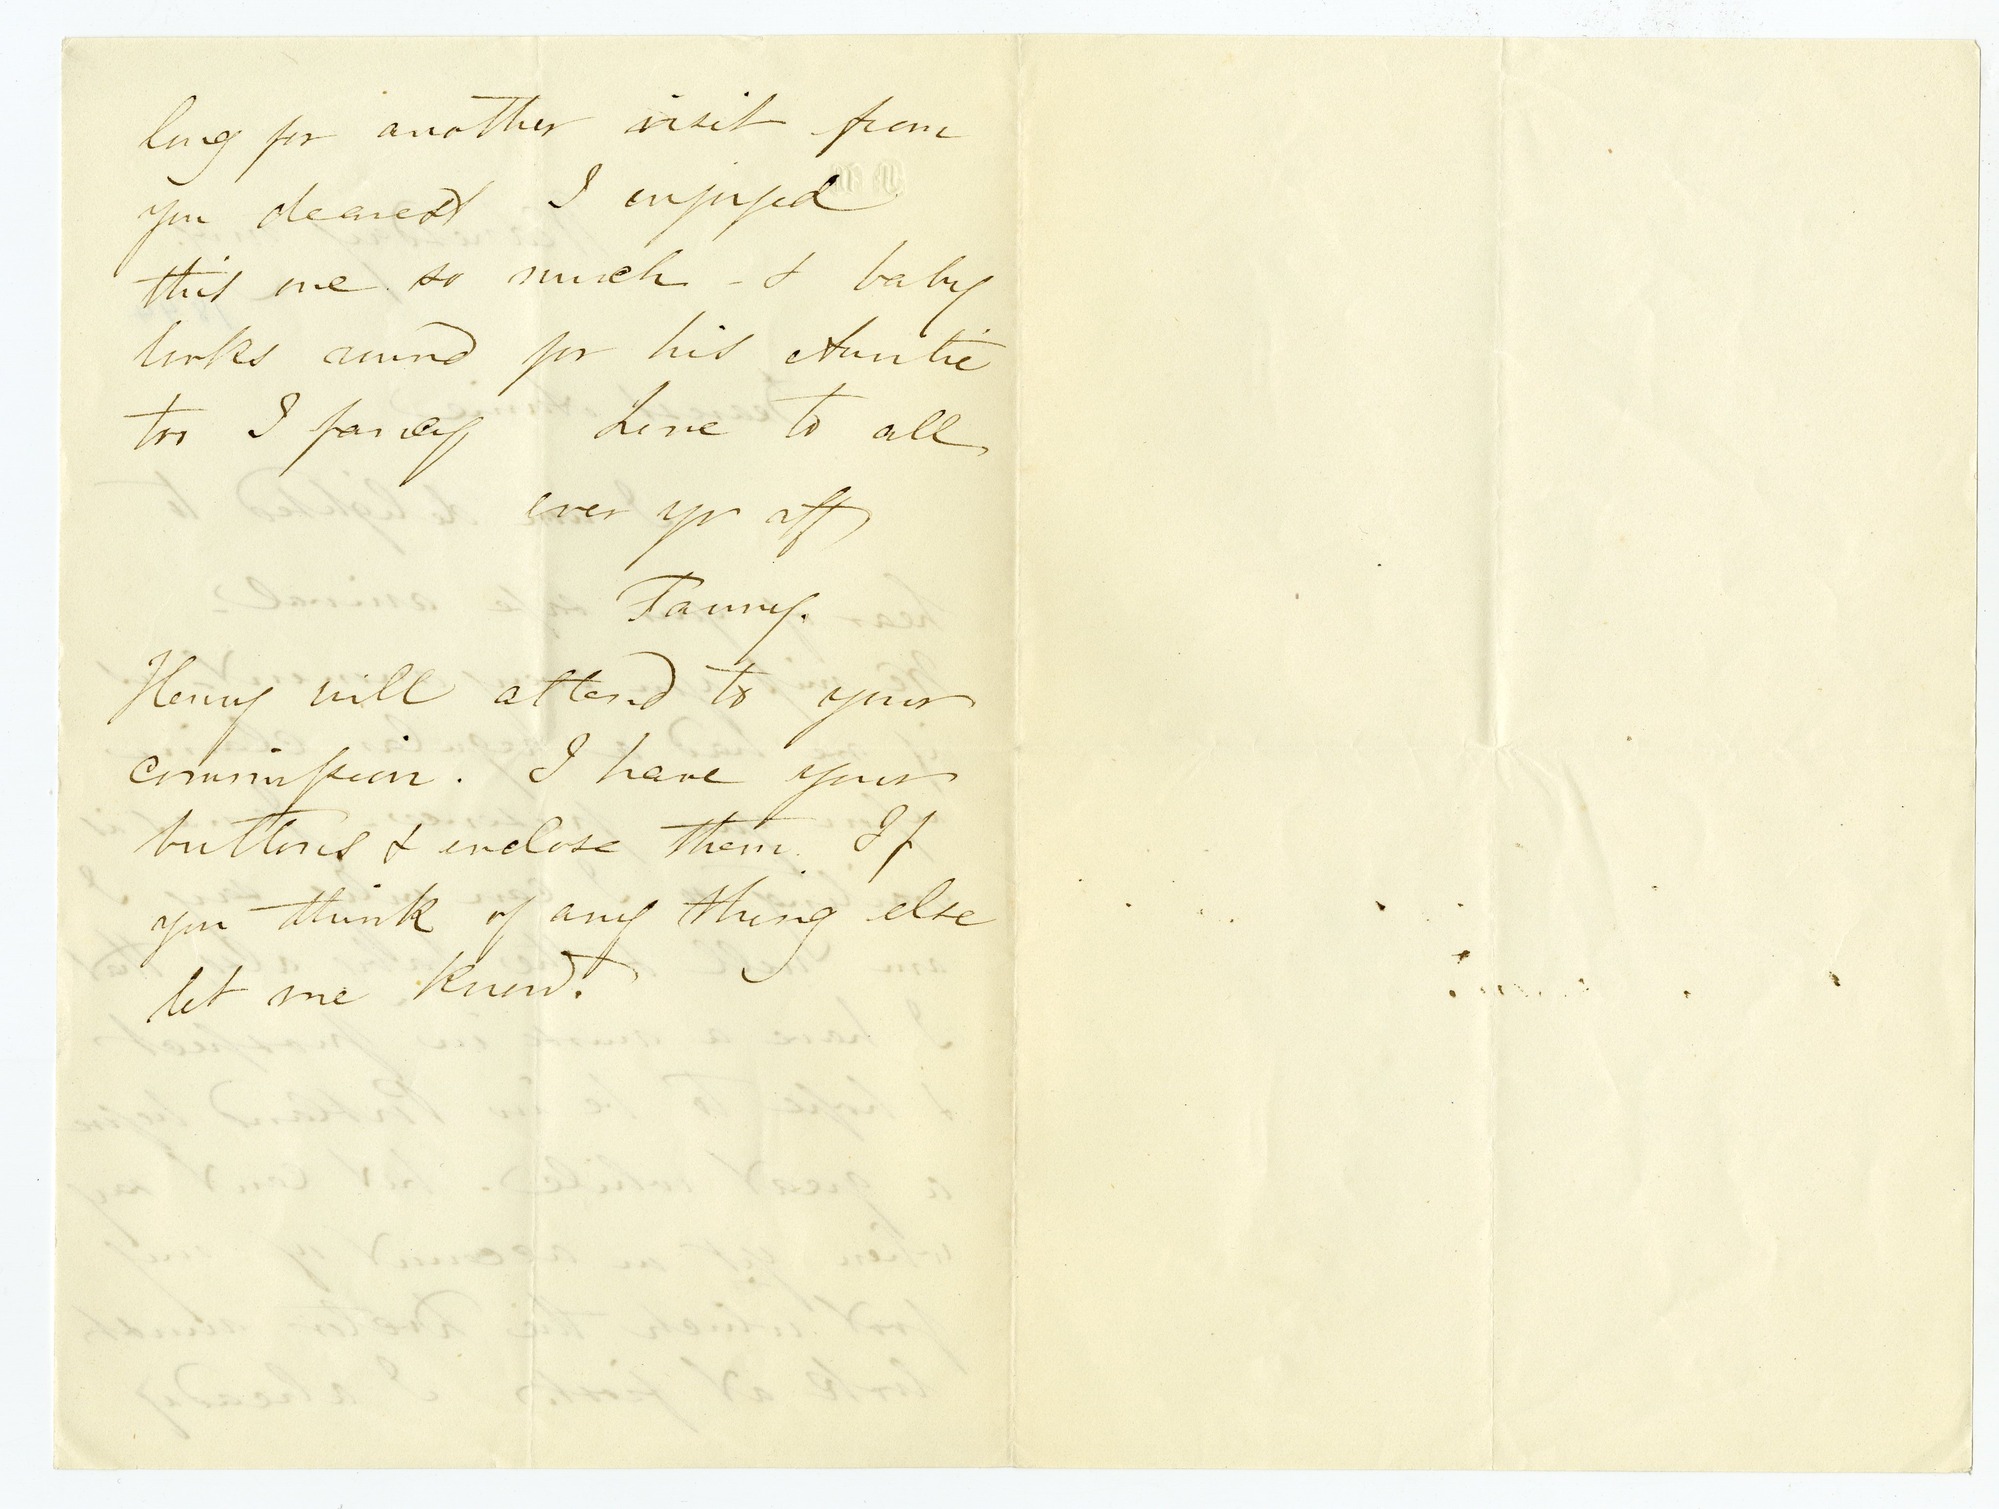 long for another visit from
you dearest I enjoyed
this one so much - & baby
looks round for his Auntie
too I fancy Love to all
ever yr aff
Fanny.
Henry will attend to your
commission. I have your
buttons & enclose them. If
you think of any thing else
let me know.